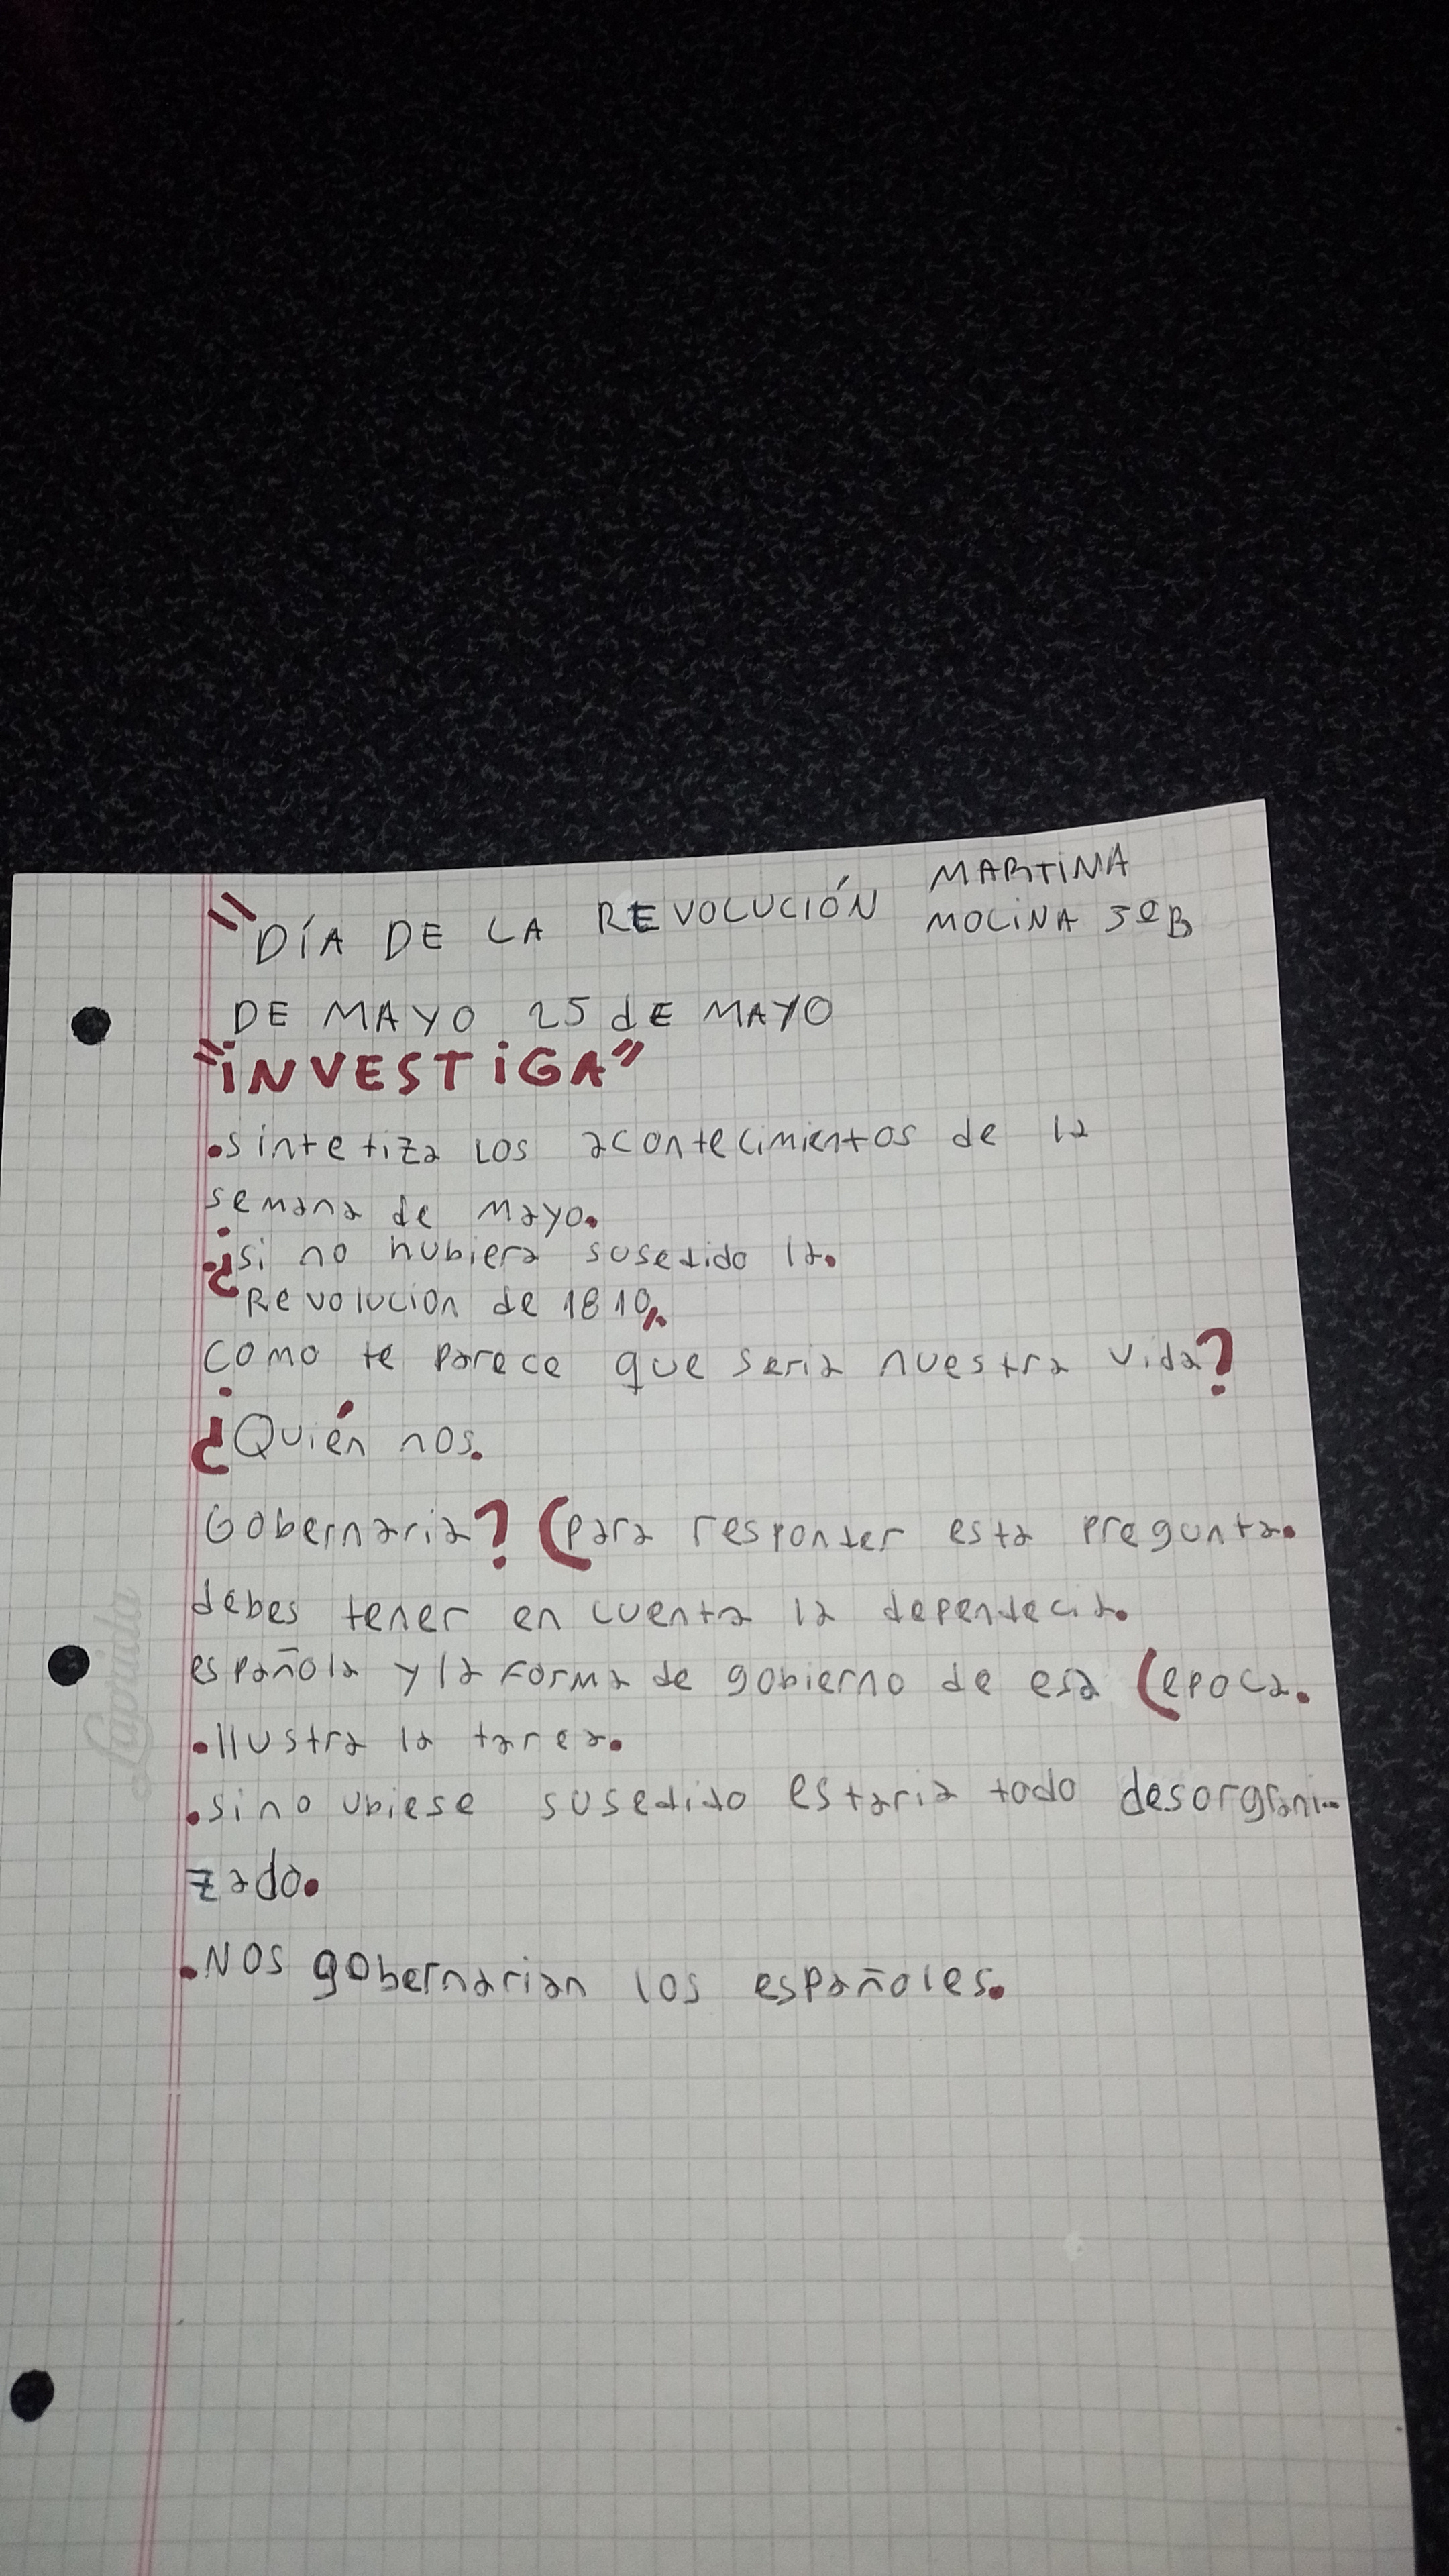 "DÍA DE LA REVOLUCIÓN
MARTINA
MOLINA 3ºB
DE MAYO 25 dE MAYO
"iNVESTiGA"
.sintetiza LOS acontecimientos de la
semana de mayo.
.¿si no hubiera susedido la.
Revolucion de 1810,.
como te parece que seria nuestra vida?
¿Quién nos.
Gobernaria? (para responder esta pregunta.
debes tener en cuenta la dependecia.
española y la forma de gobierno de esa (epoca.
.Ilustra la tarea.
.sino ubiese susedido estaria todo desorgrani-
zado.
.NOS gobernarian los españoles.
Laprida